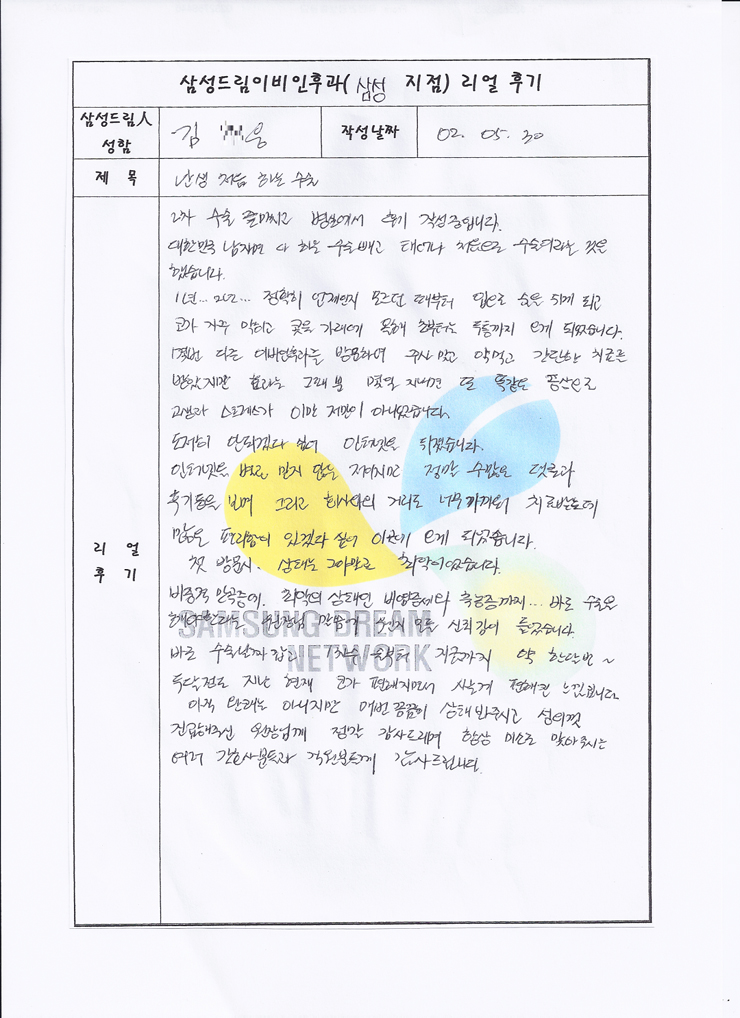 삼성드림이비인후과( 삼성 지점) 리얼 후기
삼성드림人 성함 김 웅 작성날짜 02. 05. 30
제 목 난생 처음 하는 수술
리 얼 후 기
2차 수술 끝마치고 병원에서 후기 작성중입니다.
대한민국 남자면 다 하는 수술빼고 태어나 처음으로 수술이라는 것을
했습니다.
1년... 2년... 정확히 언제인지 모르던 때부터 입으로 숨을 쉬게 되고
코가 자주 막히고 콧물 가래에 목해 두통까지 오게 되었습니다.
몇번 다른 이비인후과를 방문하여 주사 맞고 약먹고 간단한 치료를
받았지만 효과는 그때 뿐 몇일 지나면 또 똑같은 증상으로
고생과 스트레스가 이만 저만이 아니었습니다.
도저히 안되겠다 싶어 인터넷을 뒤졌습니다.
인터넷을 별로 믿지 않는 저이지만 정말 수많은 댓글과
후기들을 보며 그리고 회사와의 거리도 너무 가까워 치료받는데
많은 편리함이 있겠다 싶어 이곳에 오게 되었습니다.
첫 방문시. 상태는 그야말로 최악이었습니다.
비중격 만곡증에. 최악의 상태인 비염증세와 축농증까지... 바로 수술을
해야한다는 원장님 말씀에 왠지 모를 신뢰감이 들었습니다.
바로 수술날짜 잡고.. 1차수술부터 지금까지 약 한달반 ~
두달정도 지난 현재 코가 편해지면서 사는게 편해진 느낌입니다.
아직 완쾌는 아니지만 매번 꼼꼼히 상태 봐주시고 성의껏
진료해주신 원장님께 정말 감사드리며 항상 미소로 맞아주시는
여러 간호사분들과 직원분들께 감사드립니다.
SAMSUNG DREAM
NETWORK